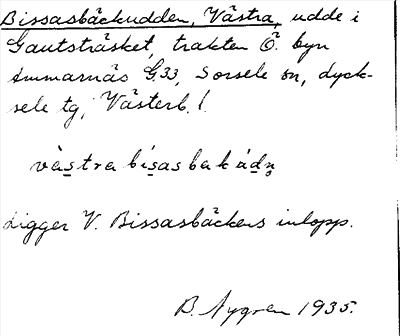 Bissasbäckudden, Västra, udde i
Gautsträsket, trakten Ö. byn
Ammarnäs G33, Sorsele sn, Lyck-
sele tg, Västerb. l.
västra bisasbakádn̥
Ligger V. Bissasbäckens inlopp.
B. Nygren 1935.